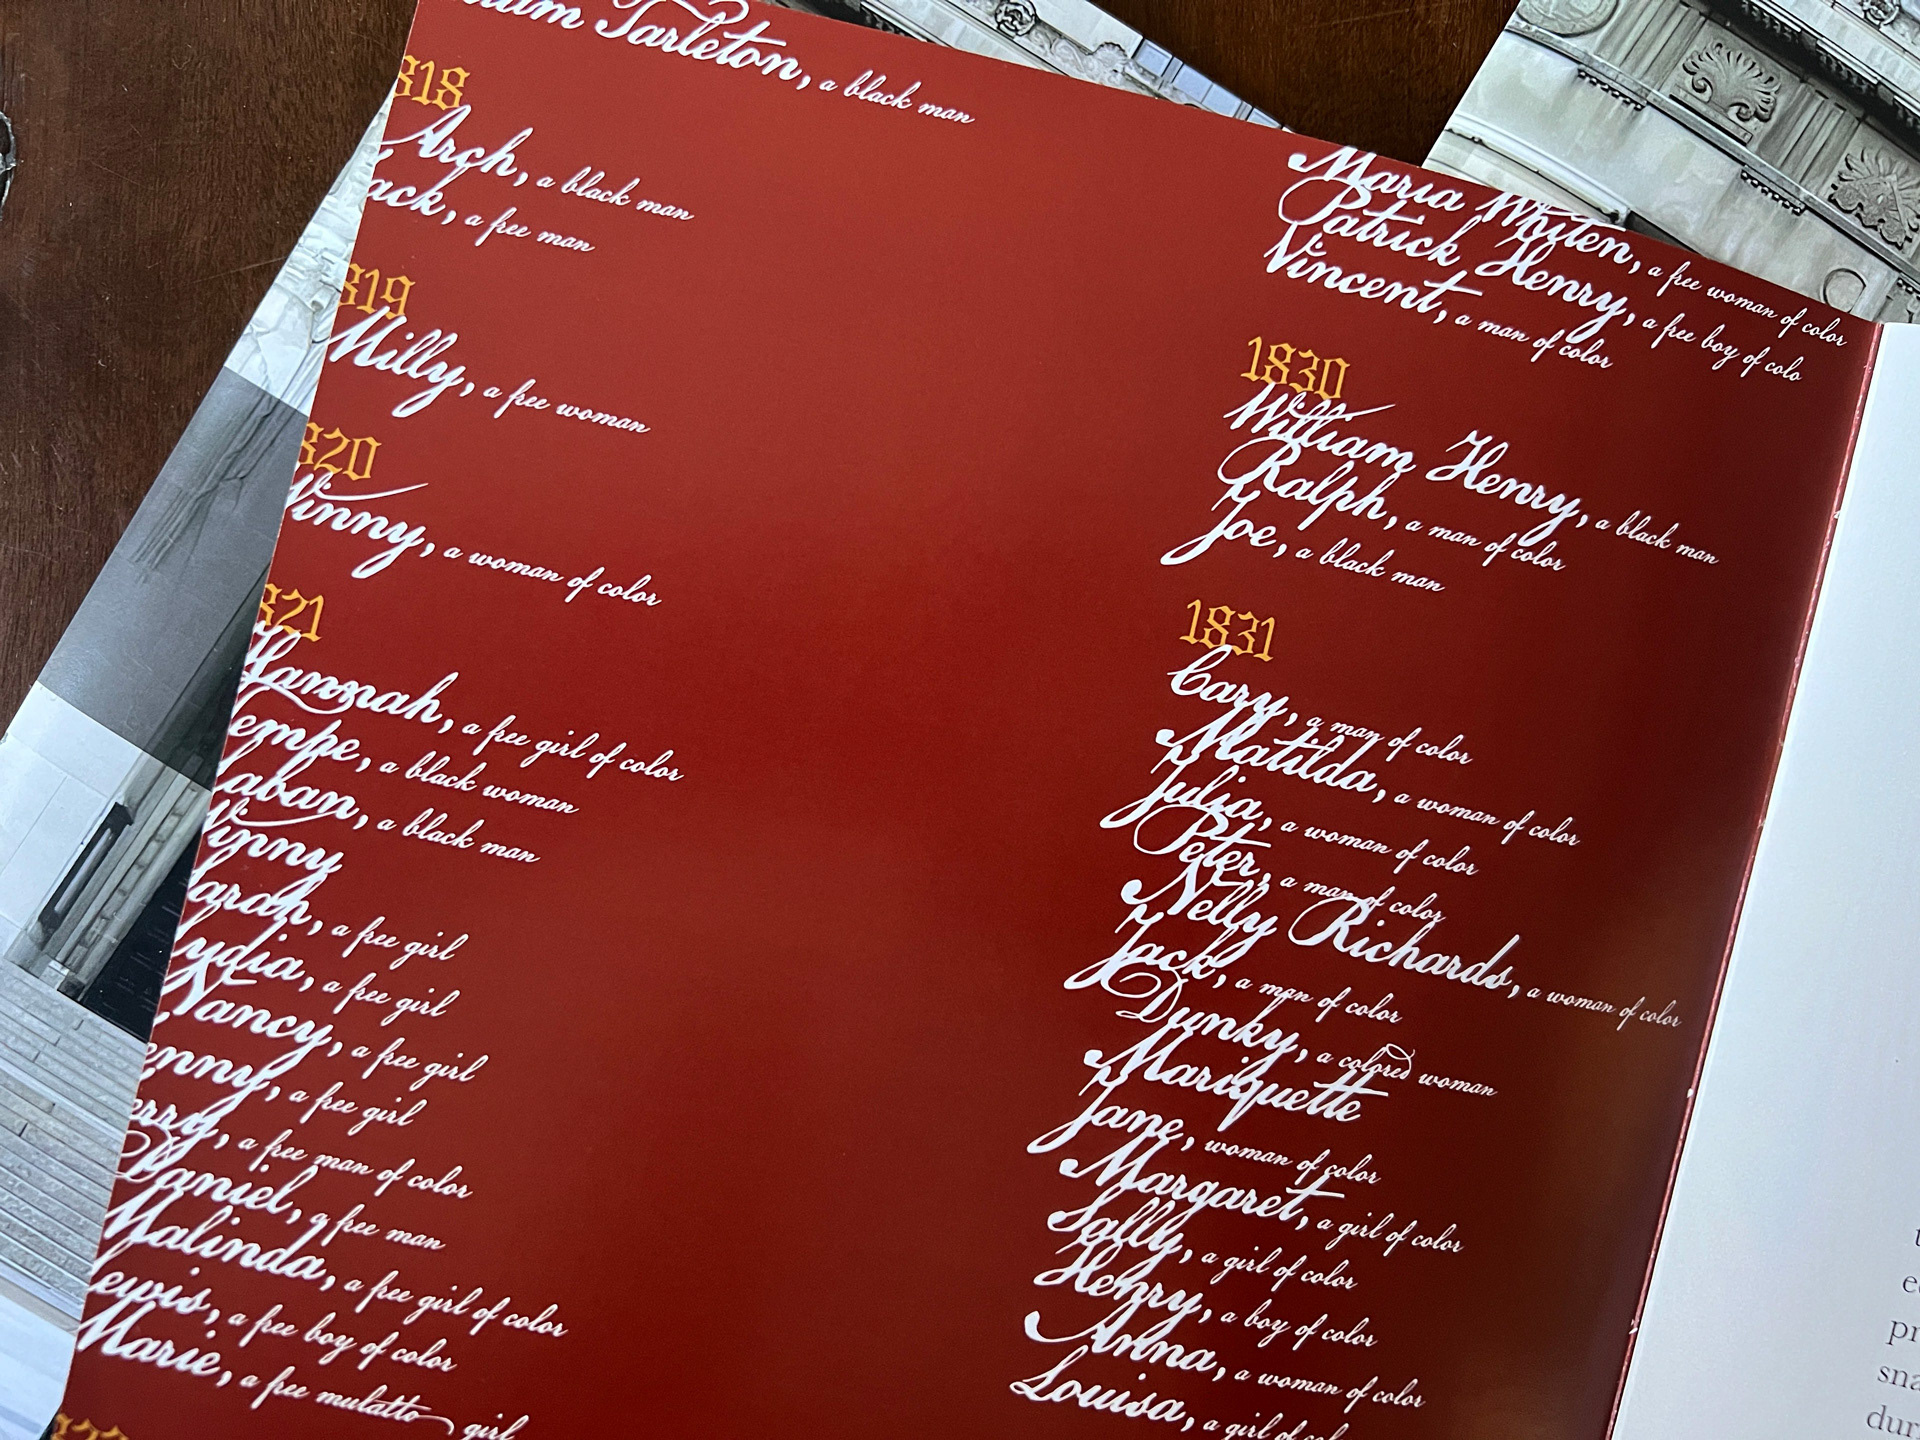 Tarleton, a black man
818
Arch, a black man
ack, a free man
819
Milly, a free woman
820
Vinny, a woman of color
821
Hannah, a free girl of color
empe, a black woman
aban, a black man
Vinny
arah, a free girl
ydia, a free girl
Nancy, a free girl
enny, a free girl
erry, a free man of color
Daniel, a free man
Malinda, a free girl of color
ewis, a free boy of color
Marie, a free mulatto girl
Maria Whiten, a free woman of color
Patrick Henry, a free boy of colo
Vincent, a man of color
1830
William Henry, a black man
Ralph, a man of color
Joe, a black man
1831
Cary, a man of color
Matilda, a woman of color
Julia, a woman of color
Peter, a man of color
Nelly Richards, a woman of color
Jack, a man of color
Dunky, a colored woman
Mariquette
Jane, woman of color
Margaret, a girl of color
Sally, a girl of color
Henry, a boy of color
Anna, a woman of color
Louisa, a girl of